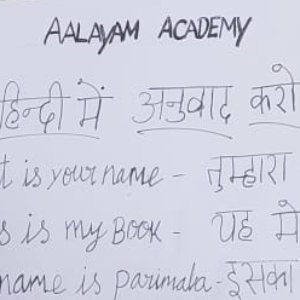 AALAYAM ACADEMY
हिन्दी में अनुवाद करो
t is your name - तुम्हारा
s is my Book - यह मे
name is parimala - इसका